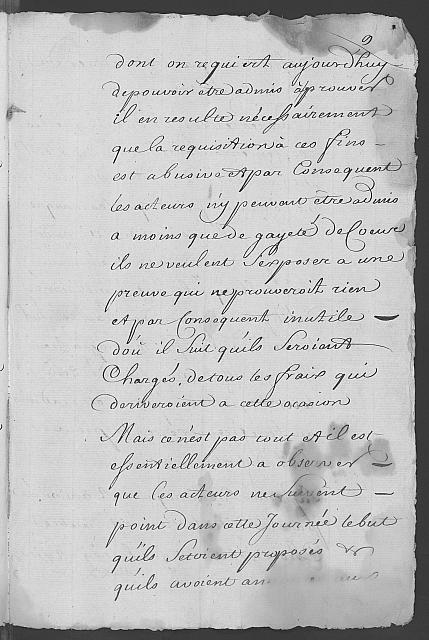 9
dont on requiert aujourd'huy
de pouvoir être admis à prouver
il en resulte nécessairement
que la requisition à ces fins
est abusive et par Consequent
les acteurs n'y peuvent être admis
a moins que de gayeté de Coeur
ils ne veulent s'exposer a une
preuve qui ne prouveroit rien
et par Consequent inutile —
doù il suit qu'ils Seroient
Chargés, de tous les fraix qui
deriveroient a cette ocasion
Mais ce n'est pas tout et il est
essentiellement a observer —
que les acteurs ne suivent —
point dans cette Journée le but
qu'ils s'etoient proposés &
qu'ils avoient